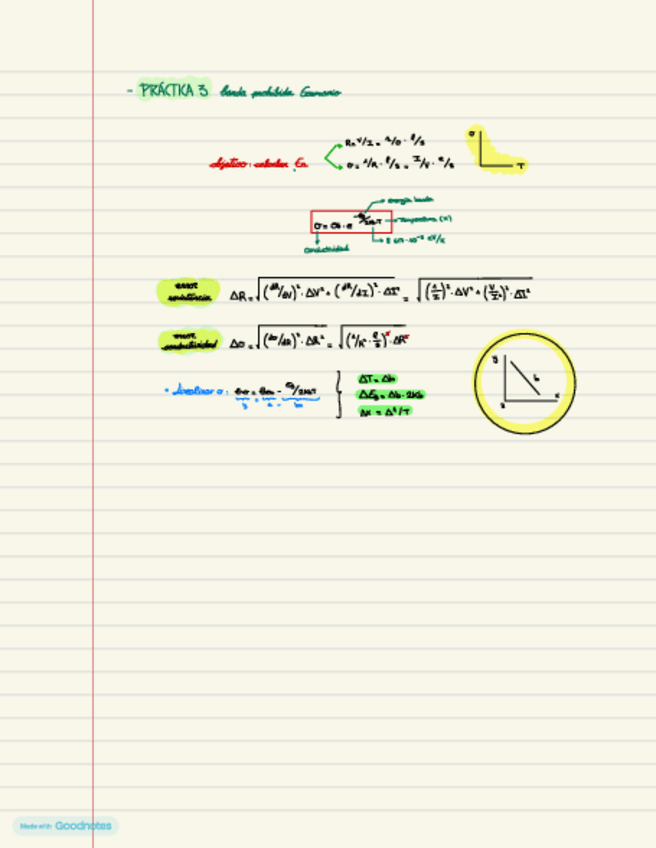 - PRÁCTICA 3 banda prohibida Germanio
R= V/I = 1/σ · l/s
objetivo: calcular Eg
σ = 1/R · l/s = I/V · l/s
σ
T
energía banda
σ = σ0 · e^-Eg/2KbT
Temperatura (K)
conductividad
error resistencia
ΔR = √(dR/dV)² · ΔV² + (dR/dI)² · ΔI² = √(1/I)² · ΔV² + (V/I²)² · ΔI²
error conductividad
Δσ = √(dσ/dR)² · ΔR² = √(1/R² · l/s)² · ΔR²
• Linealizar σ: lnσ = lnσ0 - Eg/2KbT
y
b
x
ΔT = Δb
ΔEg = Δb · 2Kb
Δx = Δ1/T
Made with Goodnotes